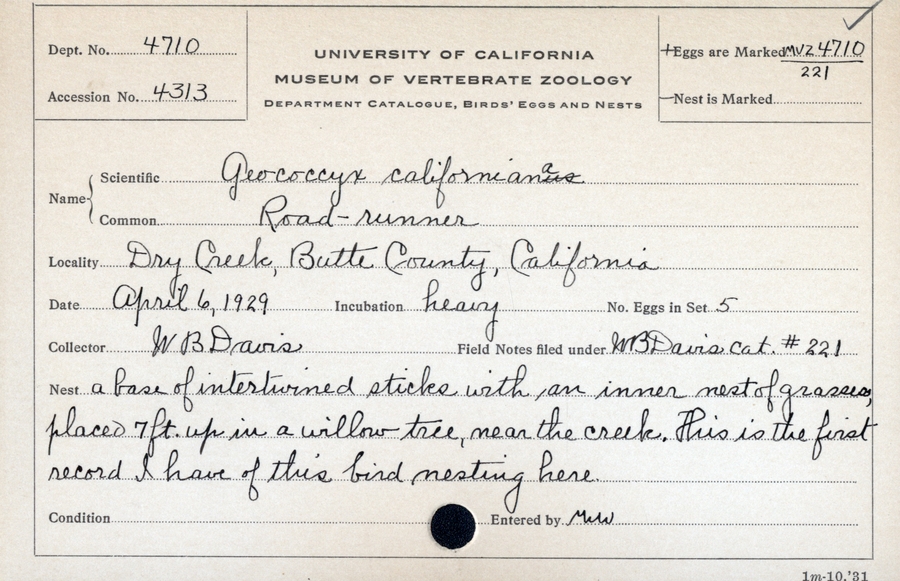 Dept. No. 4710
Accession No. 4313
UNIVERSITY OF CALIFORNIA
MUSEUM OF VERTEBRATE ZOOLOGY
DEPARTMENT CATALOGUE, BIRDS' EGGS AND NESTS
Eggs are Marked MVZ 4710
221
Nest is Marked
Name
Scientific Geococcyx californiana
Common Road-runner
Locality Dry Creek, Butte County, California
Date April 6, 1929 Incubation heavy No. Eggs in Set 5
Collector W B Davis Field Notes filed under WBDavis cat. # 221
Nest a base of intertwined sticks with an inner nest of grasses,
placed 7ft. up in a willow tree, near the creek. This is the first
record I have of this bird nesting here.
Condition Entered by
1m-10,'31